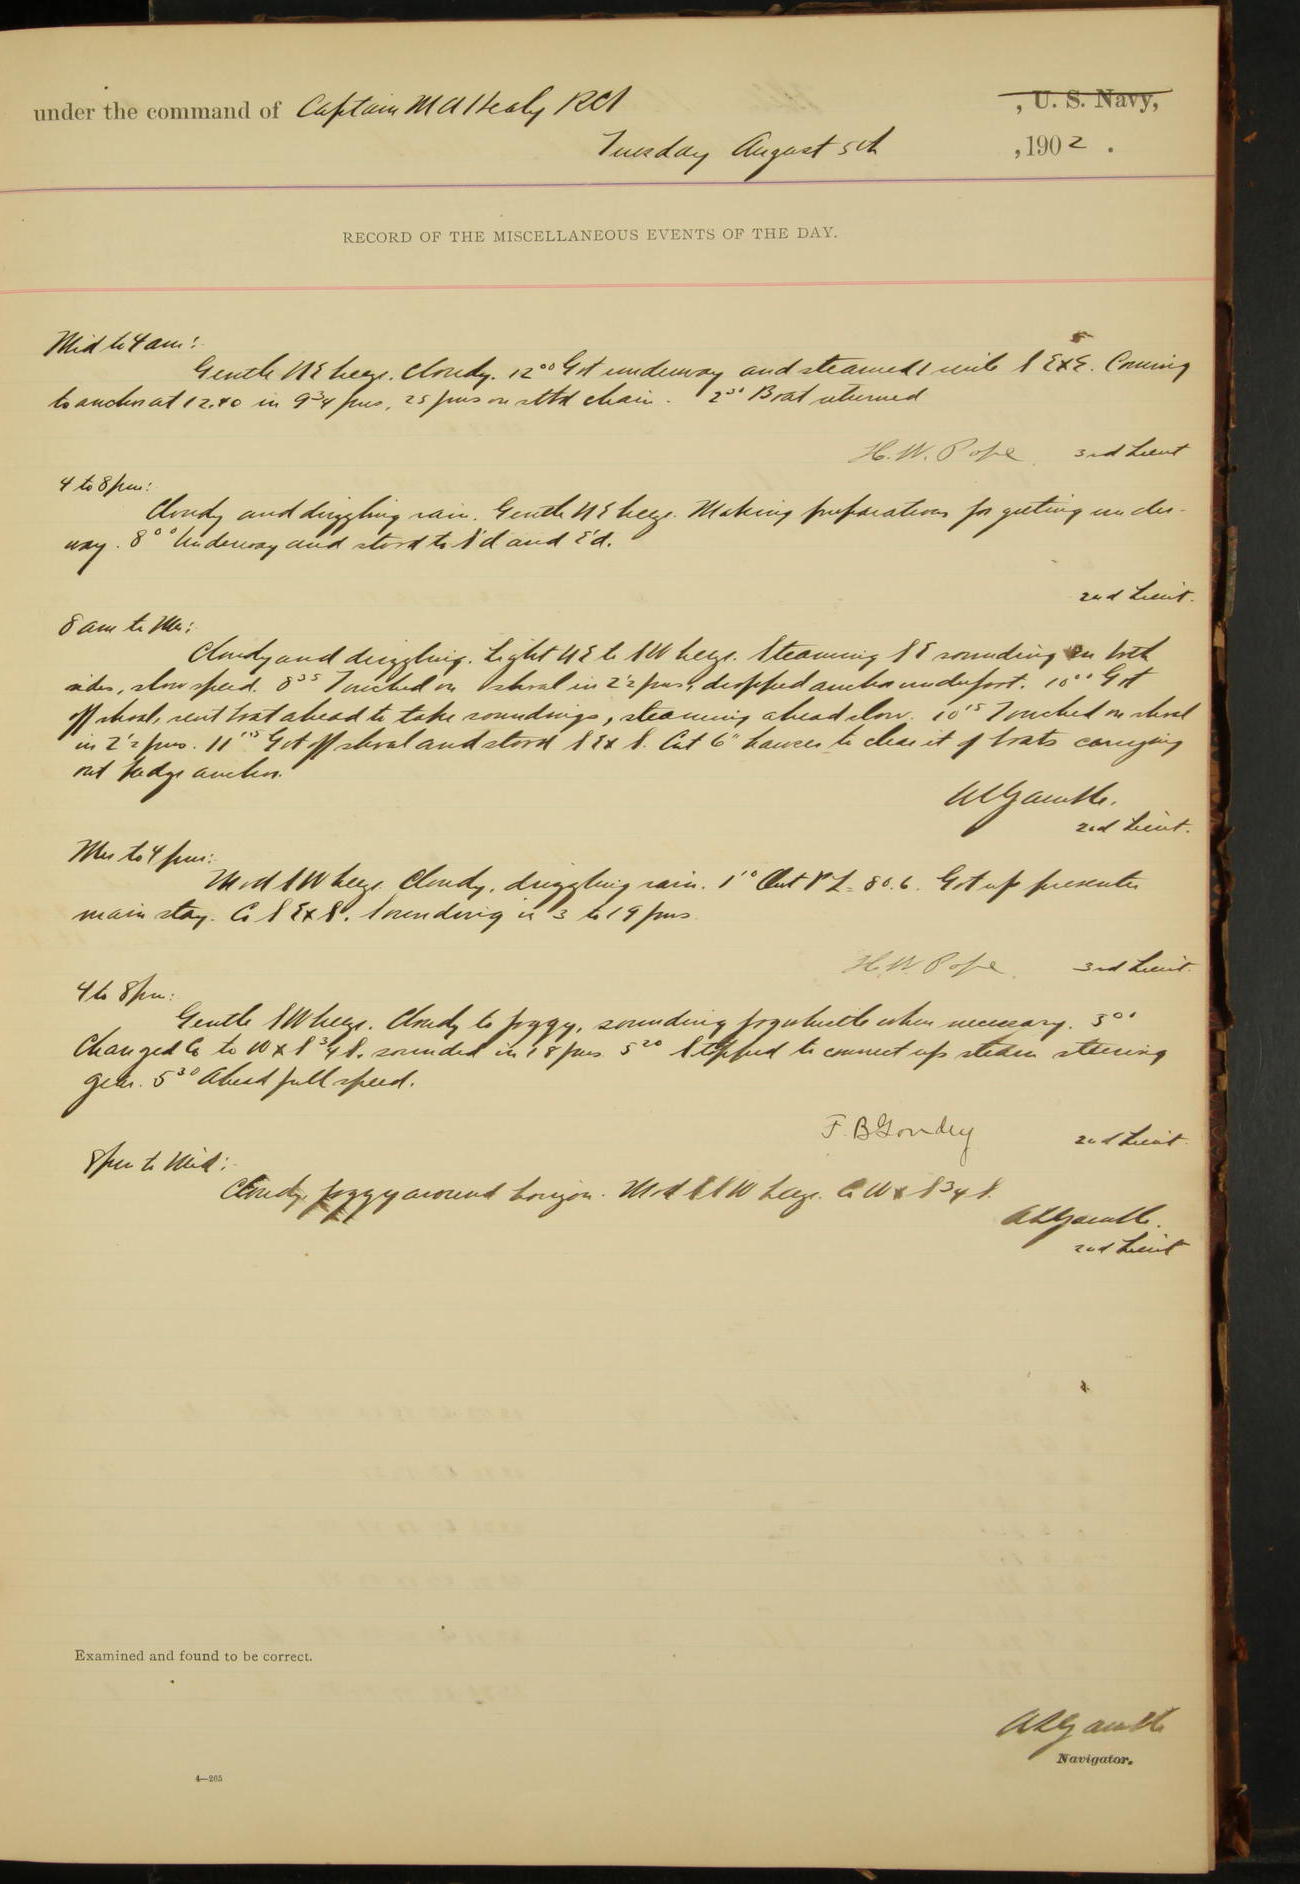 under the command of Captain M A Healy RCS , U. S. Navy,
Tuesday August 5th , 1902 .
RECORD OF THE MISCELLANEOUS EVENTS OF THE DAY.
Mid to 4 am:
Gentle NE breeze. Cloudy. 12⁰⁰ Got underway and steamed 1 mile S ExE. Coming
to anchor at 12.40 in 9 3/4 fms, 25 fms on stbd chain. 2³⁰ Boat returned
H. W. Pope 3rd Lieut
4 to 8 pm:
Cloudy and drizzling rain. Gentle NE breeze. Making preparations for getting under-
way. 8⁰⁰ Underway and stood to S'd and E'd.
2nd Lieut.
8 am to Mer:
Cloudy and drizzling. Light NE to SW breeze. Steaming SE sounding on both
sides, slow speed. 8³⁵ Touched on shoal in 2 1/2 fms, dropped anchor underfoot. 10⁰⁰ Got
off shoal, sent boat ahead to take soundings, steaming ahead slow. 10¹⁵ Touched on shoal
in 2 1/2 fms. 11¹⁵ Got off shoal and stood S E x S. Cut 6" hawser to clear it of boats carrying
out kedge anchor.
2nd Lieut.
Mer to 4 pm:
Mod SW breeze. Cloudy, drizzling rain. 1¹⁰ Out P L = 80.6. Got up
main stay. Co S E x S. Sounding in 3 to 19 fms
H. W. Pope 3rd Lieut.
4 to 8 pm:
Gentle SW breeze. Cloudy to foggy, sounding fog whistle when necessary. 5⁰⁰
Changed Co to W x S 3/4 S. sounded in 18 fms. 5²⁰ Stopped to connect up steam steering
gear. 5³⁰ Ahead full speed.
F. B Goudey 2nd Lieut.
8 pm to Mid:
Cloudy, foggy around horizon. Mod SSW breeze. Co W x S 3/4 S.
2nd Lieut
Examined and found to be correct.
Navigator.
4—265